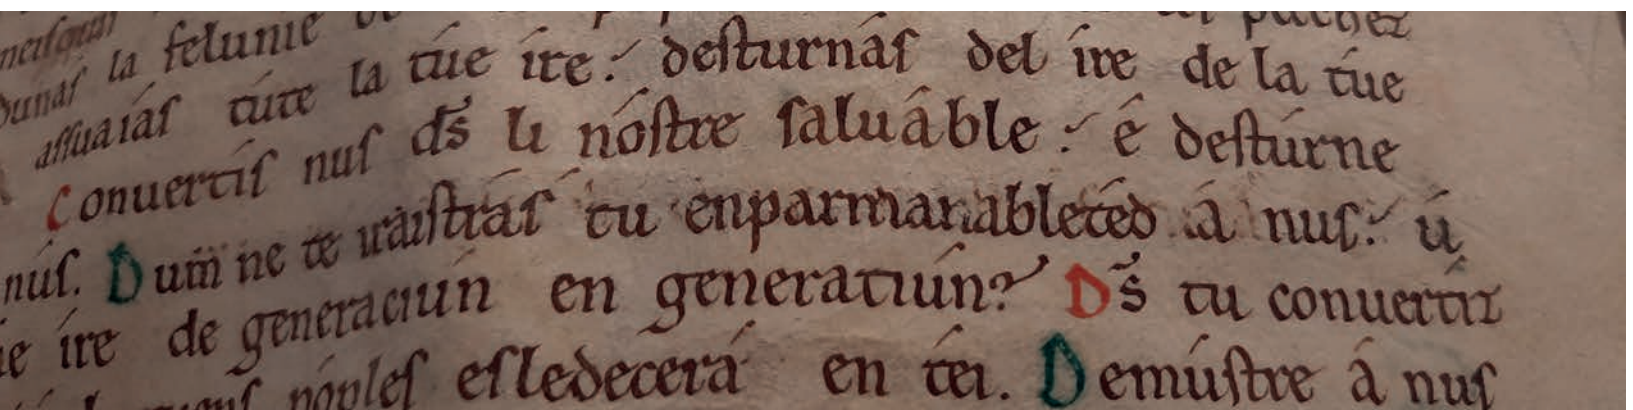 la felunie
assuaias tute la túe ire: desturnás del ire de la túe
Conuertis nus ds̄ li nóstre saluáble: é destúrne
nús. Dum̄ ne te iráistrás tu enparmanableted á nus: ú
ire de generaciún en generatiún? Ds̄ tu conuertiz
póples esledecerá en téi. Demústre á nus